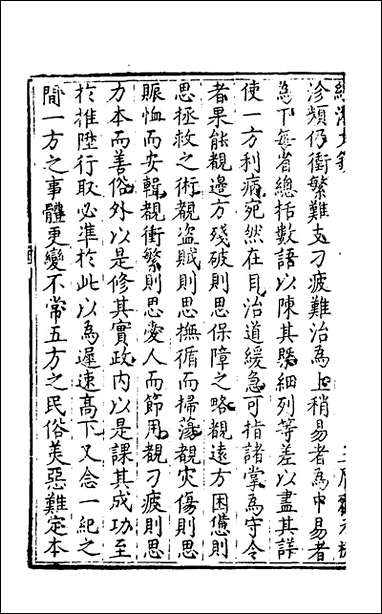 沴頻仍衝繁難支刁疲難治為上稍易者為中易者
為下每省總括數語以陳其槩細列等差以盡其詳
使一方利病宛然在目治道緩急可指諸掌為守令
者果能觀邊方殘破則思保障之略觀遠方困憊則
思拯救之術觀盗賊則思撫循而掃蕩觀灾傷則思
賑恤而安輯觀衝繁則思愛人而節用觀刁疲則思
力本而善俗外以是修其實政内以是課其成功至
於推陞行取必準於此以為遲速高下又念一紀之
間一方之事體更變不常五方之民俗美惡難定本